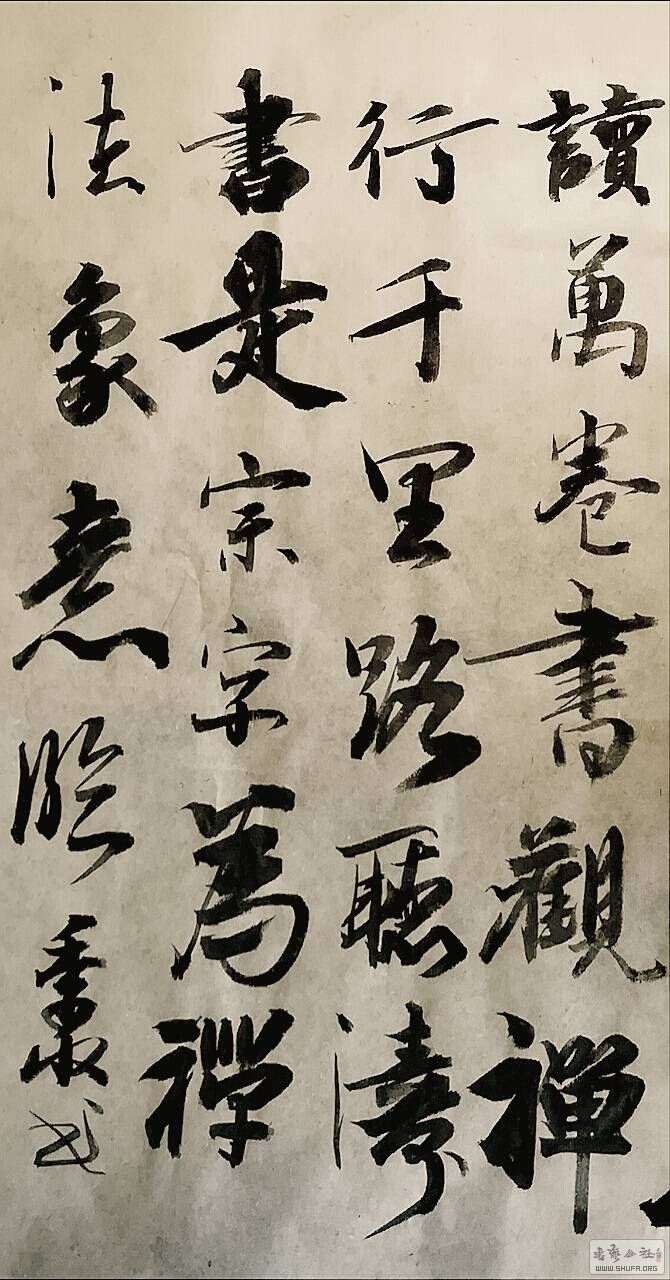 讀萬卷書觀禪
行千里路聽濤
書是宗字為禪
法象意臨
書藝公社
WWW.SHUFA.ORG